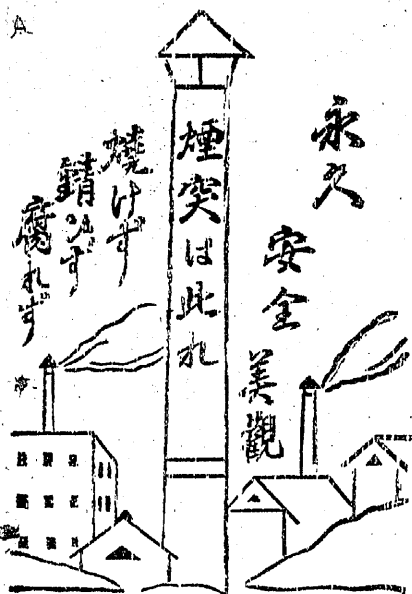 永久
安全
美觀
煙突は此れ
燒けず
錆びず
腐れず
A